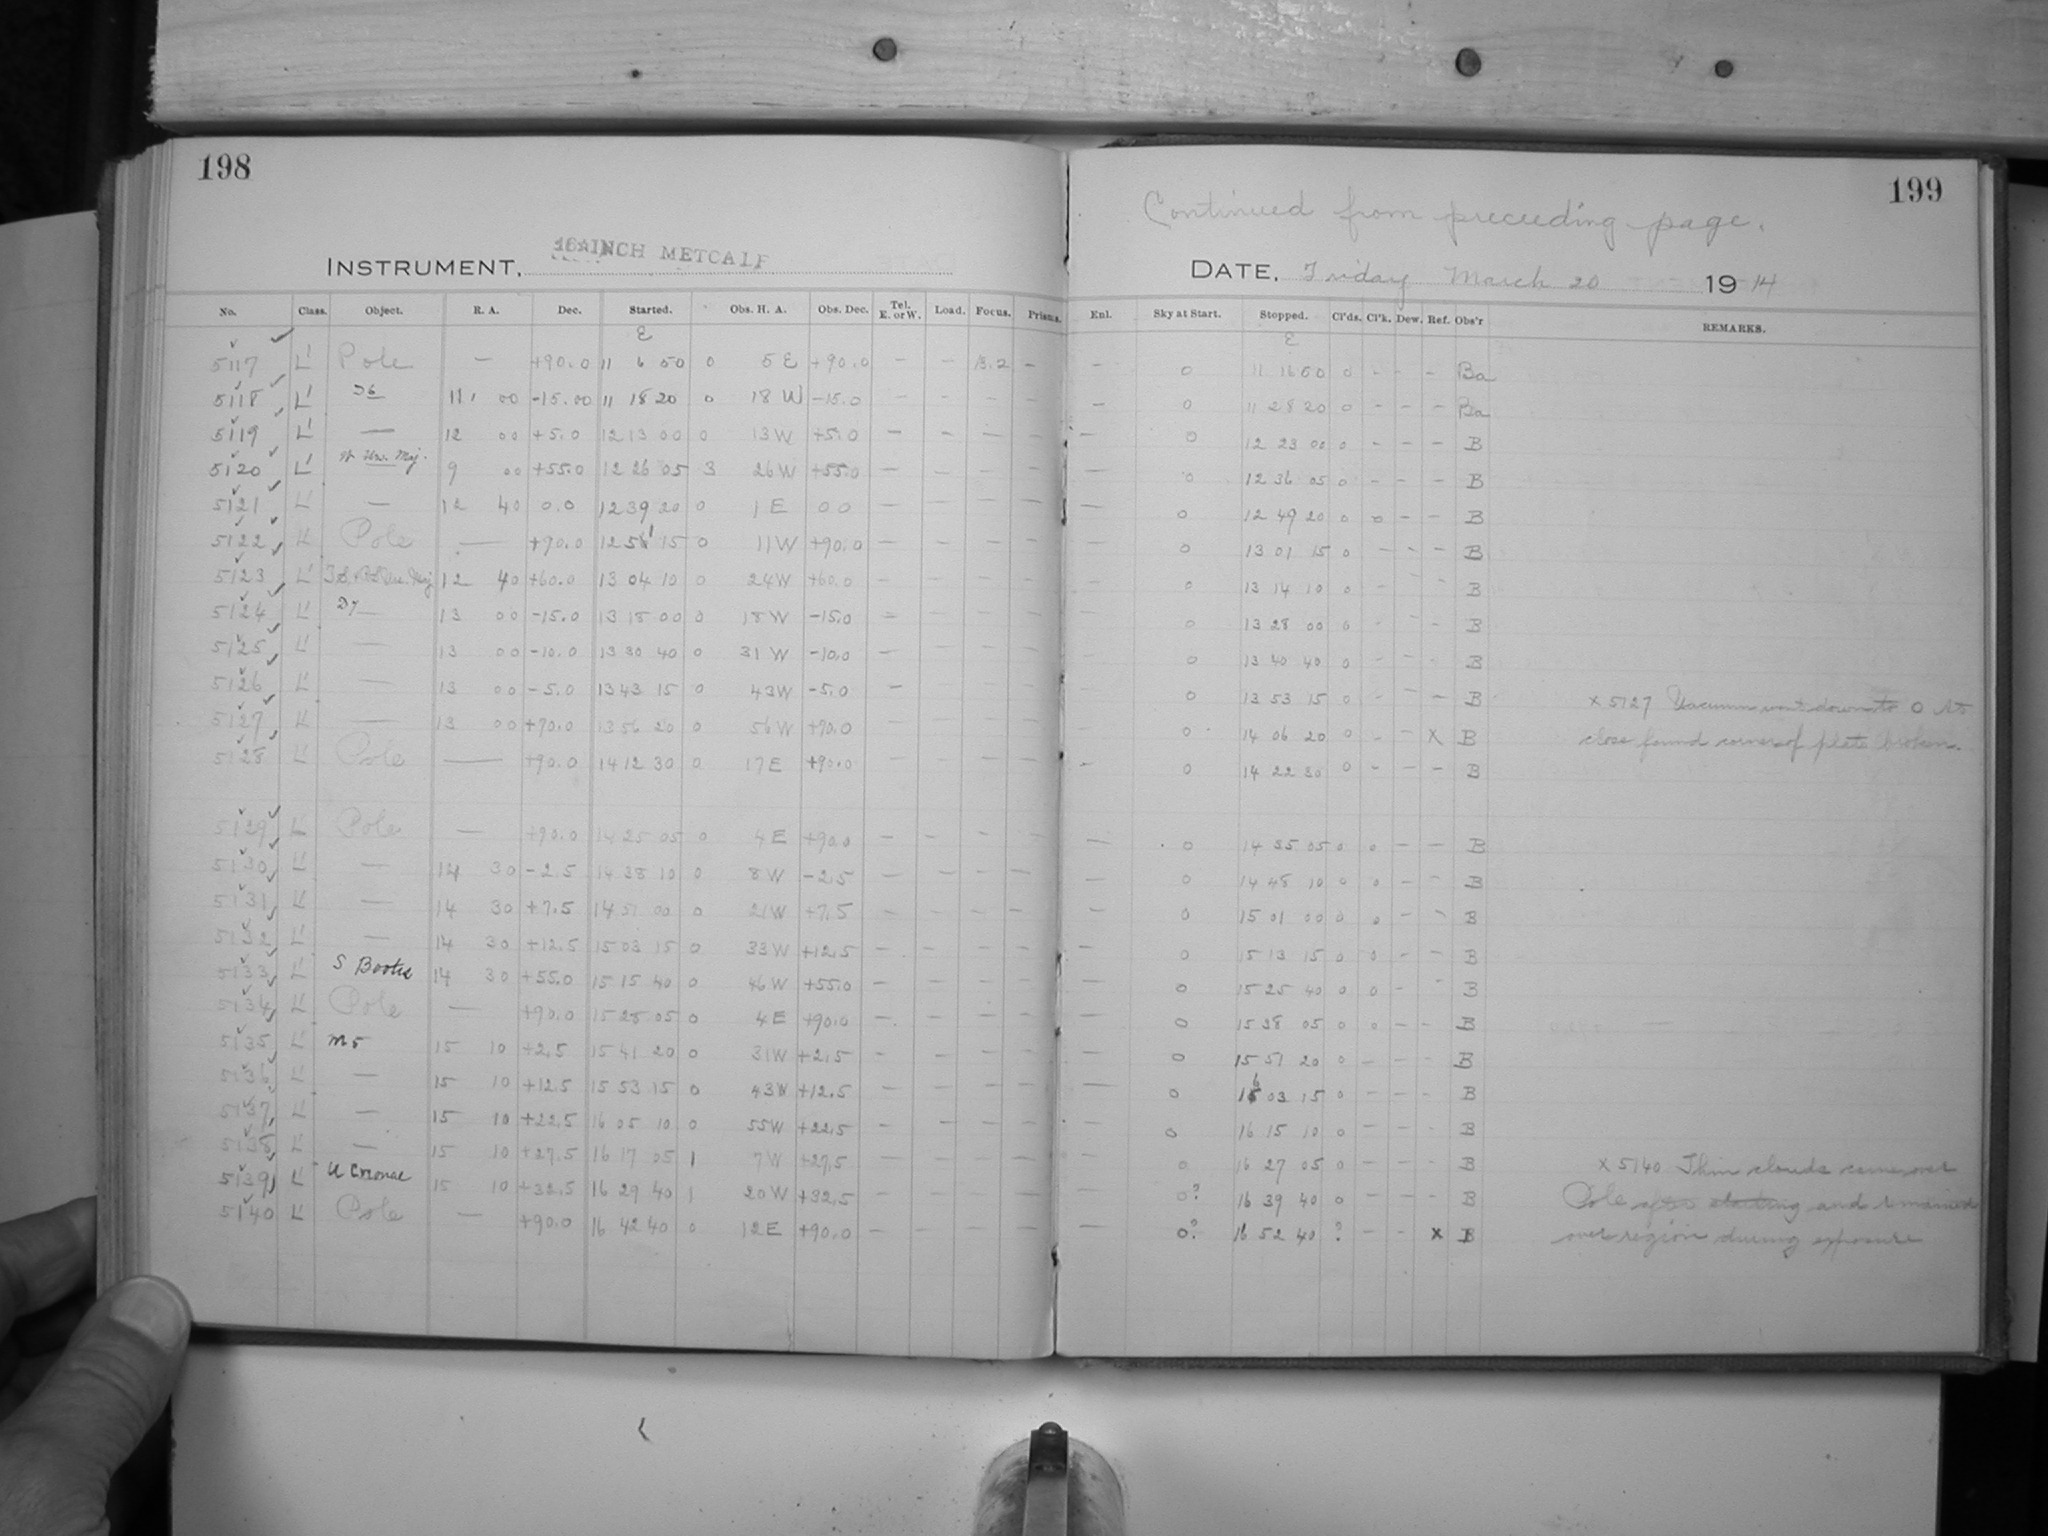 198
INSTRUMENT, 16-INCH METCALF
No. Class. Object. R. A. Dec. Started. Obs. H. A. Obs. Dec. Tel. E. or W. Load. Focus. Prisms.
E
5117 L' Pole — +90.0 11 6 50 0 5 E +90.0 — — 13.2 —
5118 L' D6 11 00 -15.00 11 18 20 0 18 W -15.0 — — — —
5119 L' — 12 00 +5.0 12 13 00 0 13 W +5.0 — — — —
5120 L' Urs. Maj. 9 00 +55.0 12 26 05 3 26 W +55.0 — — — —
5121 L' — 12 40 0.0 12 39 20 0 1 E 0 0 — — — —
5122 L' Pole — +90.0 12 51 15 0 11 W +90.0 — — — —
5123 L' 12 40 +60.0 13 04 10 0 24 W +60.0 — — — —
5124 L' D7 — 13 00 -15.0 13 18 00 0 18 W -15.0 — — — —
5125 L' — 13 00 -10.0 13 30 40 0 31 W -10.0 — — — —
5126 L' — 13 00 -5.0 13 43 15 0 43 W -5.0 — — — —
5127 L' — 13 00 +70.0 13 56 20 0 56 W +70.0 — — — —
5128 L' Pole — +90.0 14 12 30 0 17 E +90.0 — — — —
5129 L' Pole — +90.0 14 25 05 0 4 E +90.0 — — — —
5130 L' — 14 30 -2.5 14 38 10 0 8 W -2.5 — — — —
5131 L' — 14 30 +7.5 14 51 00 0 21 W +7.5 — — — —
5132 L' — 14 30 +12.5 15 03 15 0 33 W +12.5 — — — —
5133 L' S Bootis 14 30 +55.0 15 15 40 0 46 W +55.0 — — — —
5134 L' Pole — +90.0 15 28 05 0 4 E +90.0 — — — —
5135 L' M 5 15 10 +2.5 15 41 20 0 31 W +2.5 — — — —
5136 L' — 15 10 +12.5 15 53 15 0 43 W +12.5 — — — —
5137 L' — 15 10 +22.5 16 05 10 0 55 W +22.5 — — — —
5138 L' — 15 10 +27.5 16 17 05 1 7 W +27.5 — — — —
5139 L' U Coronae 15 10 +32.5 16 29 40 1 20 W +32.5 — — — —
5140 L' Pole — +90.0 16 42 40 0 12 E +90.0 — — — —
199
Continued from preceeding page.
DATE, Friday March 20 1914
Enl. Sky at Start. Stopped. Cl'ds. Cl'k. Dew. Ref. Obs'r REMARKS.
E
— 0 11 16 50 0 - - - Ba
— 0 11 28 20 0 - - - Ba
— 0 12 23 00 0 - - - B
— 0 12 36 05 0 - - - B
— 0 12 49 20 0 0 - - B
— 0 13 01 15 0 - - - B
— 0 13 14 10 0 - - - B
— 0 13 28 00 0 - - - B
— 0 13 40 40 0 - - - B
— 0 13 53 15 0 - - - B x 5127 Vacuum went down to 0 At
— 0 14 06 20 0 - - X B close found corner of plate broken.
— 0 14 22 30 0 - - - B
— 0 14 35 05 0 0 - - B
— 0 14 48 10 0 0 - - B
— 0 15 01 00 0 0 - - B
— 0 15 13 15 0 0 - - B
— 0 15 25 40 0 0 - - B
— 0 15 38 05 0 0 - - B
— 0 15 51 20 0 - - - B
— 0 16 03 15 0 - - - B
— 0 16 15 10 0 - - - B
— 0 16 27 05 0 - - - B x 5140 Thin clouds came over
— 0? 16 39 40 0 - - - B Pole after starting and remained
— 0? 16 52 40 ? - - x B over region during exposure